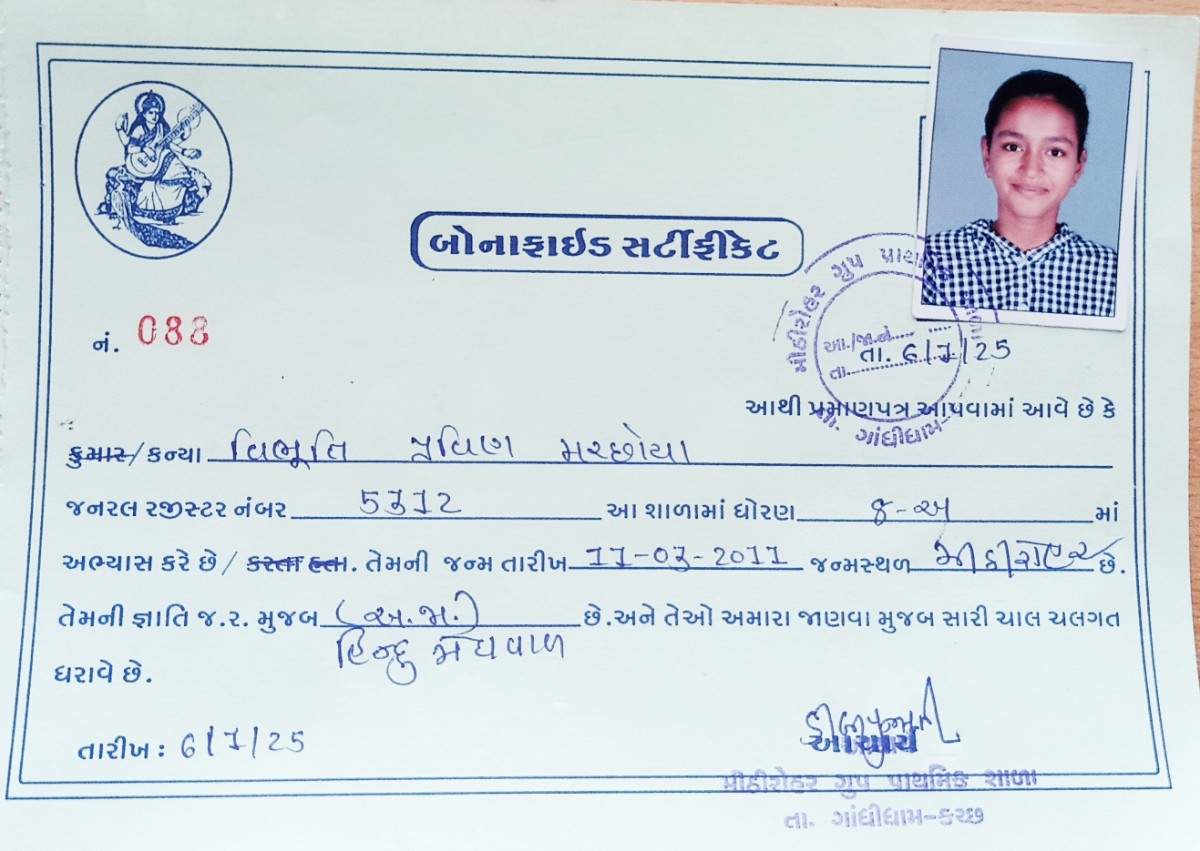 બોનાફાઇડ સર્ટીફીકેટ
નં. 088
મીઠીરોહર ગ્રુપ પ્રાથમિક શાળા
આ./જા.નં.....
તા.
તા. ગાંધીધામ-
તા. 6/1/25
આથી પ્રમાણપત્ર આપવામાં આવે છે કે
કુમાર/કન્યા વિભૂતિ પ્રવિણ મરછોયા
જનરલ રજીસ્ટર નંબર 5312 આ શાળામાં ધોરણ 8-અ માં
અભ્યાસ કરે છે / કરતા હતા. તેમની જન્મ તારીખ 11-03-2011 જન્મસ્થળ મીઠીરોહર છે.
તેમની જ્ઞાતિ જ.ર. મુજબ (અ.જા.) છે.અને તેઓ અમારા જાણવા મુજબ સારી ચાલ ચલગત
હિન્દુ મેઘવાળ
ધરાવે છે.
તારીખ : 6/1/25
આચાર્ય
મીઠીરોહર ગ્રુપ પ્રાથમિક શાળા
તા. ગાંધીધામ-કચ્છ